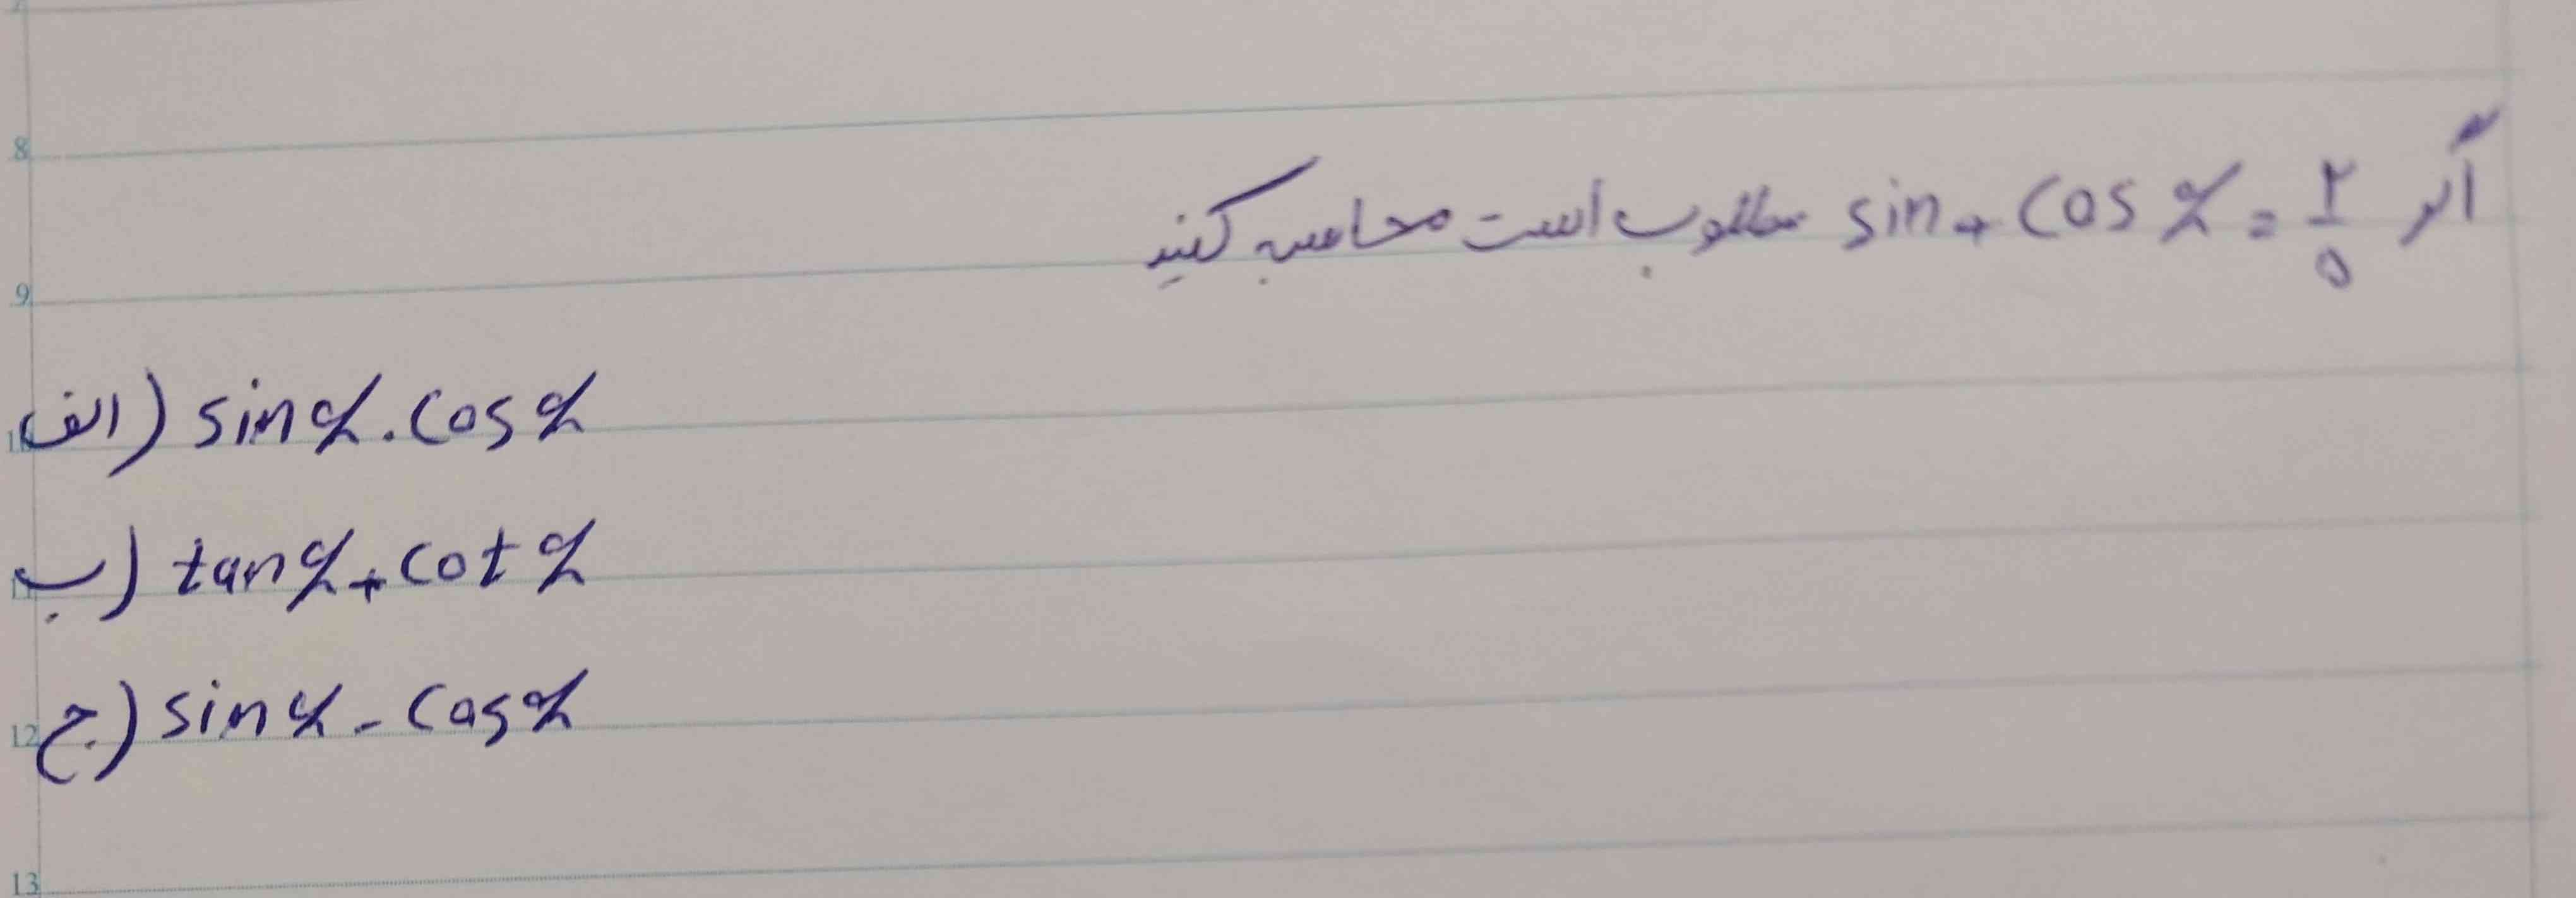 8
اگر sin + cos α = ۲/۵ مطلوب است محاسبه کنید
9
الف) sin α . cos α
ب) tan α + cot α
12
ج) sin α - cos α
13